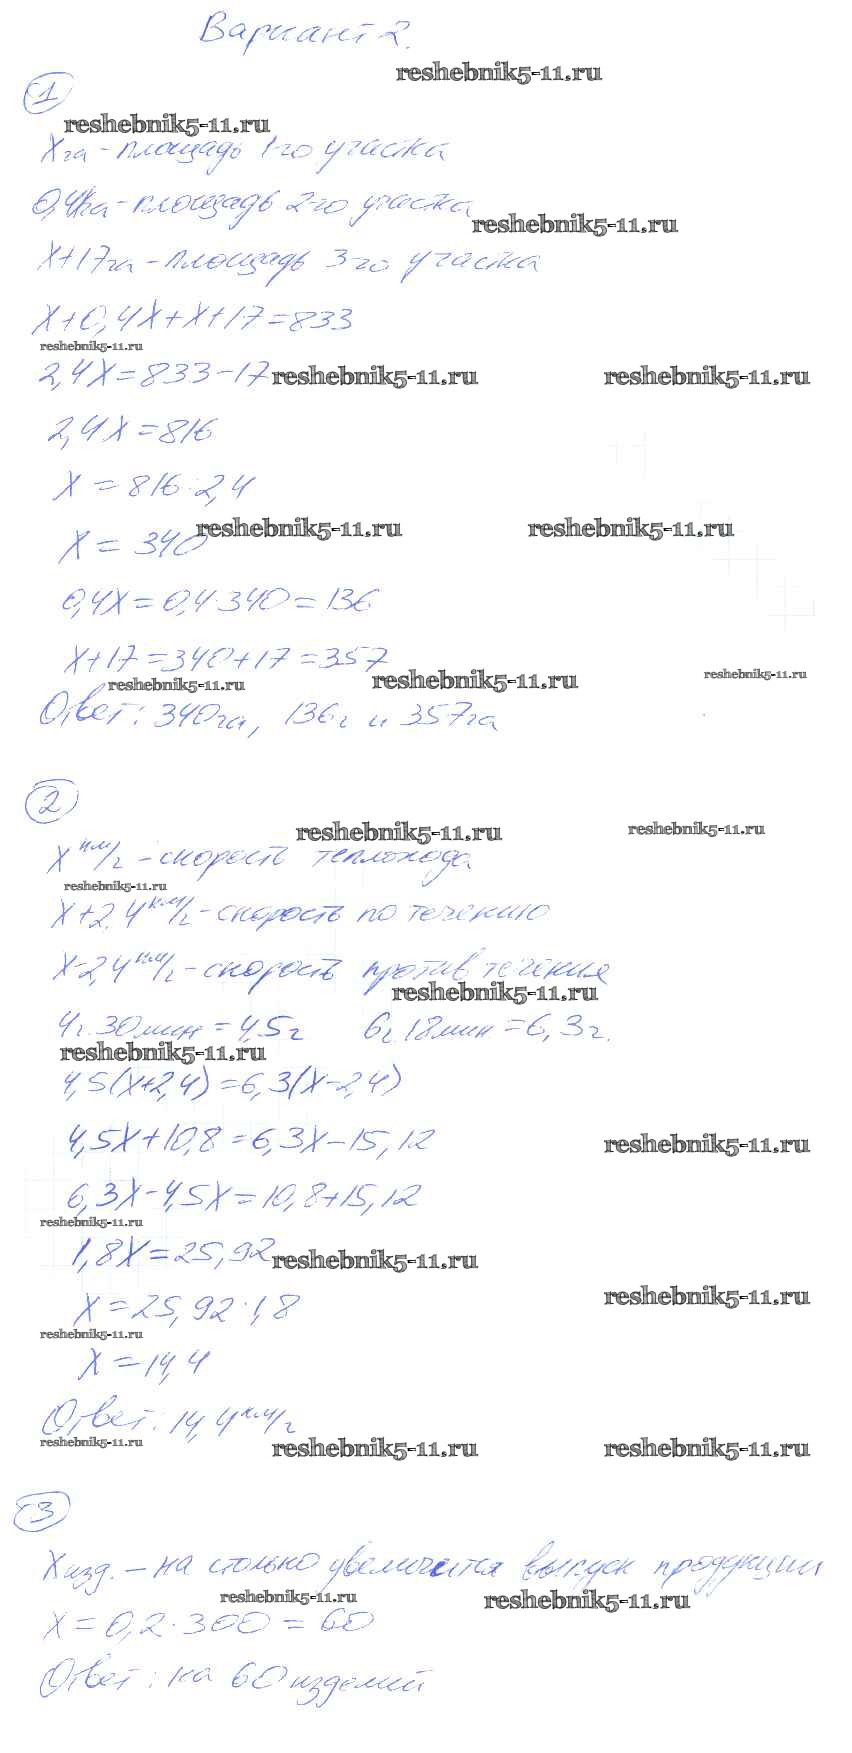 Вариант 2.
reshebnik5-11.ru
1
reshebnik5-11.ru
X га - площадь 1-го участка
0,4X га - площадь 2-го участка
reshebnik5-11.ru
X+17 га - площадь 3-го участка
X+0,4X+X+17=833
reshebnik5-11.ru
2,4X=833-17
reshebnik5-11.ru
reshebnik5-11.ru
2,4X=816
X=816:2,4
X=340
reshebnik5-11.ru
reshebnik5-11.ru
0,4X=0,4·340=136
X+17=340+17=357
reshebnik5-11.ru
reshebnik5-11.ru
reshebnik5-11.ru
Ответ: 340га, 136г и 357га
2
reshebnik5-11.ru
reshebnik5-11.ru
X км/г - скорость теплохода
reshebnik5-11.ru
X+2,4 км/г - скорость по течению
X-2,4 км/г - скорость против течения
reshebnik5-11.ru
4г.30мин=4,5г 6г.18мин=6,3г.
reshebnik5-11.ru
4,5(X+2,4)=6,3(X-2,4)
4,5X+10,8=6,3X-15,12
reshebnik5-11.ru
6,3X-4,5X=10,8+15,12
reshebnik5-11.ru
1,8X=25,92
reshebnik5-11.ru
X=25,92:1,8
reshebnik5-11.ru
reshebnik5-11.ru
X=14,4
Ответ: 14,4км/г
reshebnik5-11.ru
reshebnik5-11.ru
reshebnik5-11.ru
3
X изд. - на столько увеличится выпуск продукции
reshebnik5-11.ru
reshebnik5-11.ru
X=0,2·300=60
Ответ: на 60 изделий